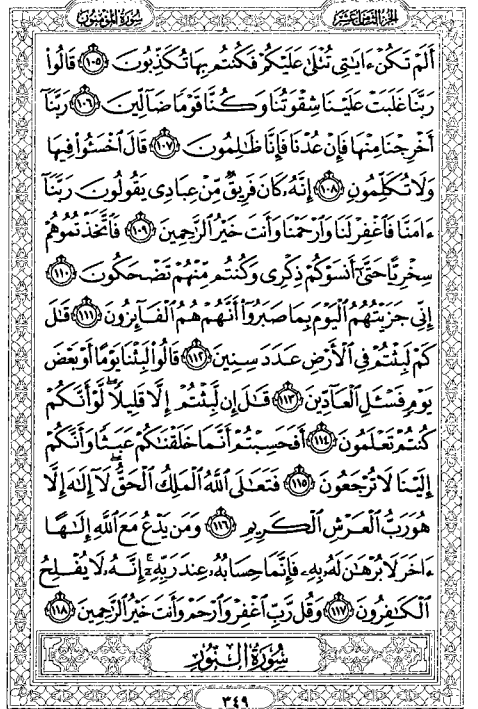 سُورَةُ المُؤْمِنُون
الجُزْءُ الثَّامِنَ عَشَرَ
أَلَمۡ تَكُنۡ ءَايَٰتِي تُتۡلَىٰ عَلَيۡكُمۡ فَكُنتُم بِهَا تُكَذِّبُونَ ١٠٥ قَالُواْ
رَبَّنَا غَلَبَتۡ عَلَيۡنَا شِقۡوَتُنَا وَكُنَّا قَوۡمٗا ضَآلِّينَ ١٠٦ رَبَّنَآ
أَخۡرِجۡنَا مِنۡهَا فَإِنۡ عُدۡنَا فَإِنَّا ظَٰلِمُونَ ١٠٧ قَالَ ٱخۡسَـُٔواْ فِيهَا
وَلَا تُكَلِّمُونِ ١٠٨ إِنَّهُۥ كَانَ فَرِيقٞ مِّنۡ عِبَادِي يَقُولُونَ رَبَّنَآ
ءَامَنَّا فَٱغۡفِرۡ لَنَا وَٱرۡحَمۡنَا وَأَنتَ خَيۡرُ ٱلرَّٰحِمِينَ ١٠٩ فَٱتَّخَذۡتُمُوهُمۡ
سِخۡرِيًّا حَتَّىٰٓ أَنسَوۡكُمۡ ذِكۡرِي وَكُنتُم مِّنۡهُمۡ تَضۡحَكُونَ ١١٠
إِنِّي جَزَيۡتُهُمُ ٱلۡيَوۡمَ بِمَا صَبَرُوٓاْ أَنَّهُمۡ هُمُ ٱلۡفَآئِزُونَ ١١١ قَٰلَ
كَمۡ لَبِثۡتُمۡ فِي ٱلۡأَرۡضِ عَدَدَ سِنِينَ ١١٢ قَالُواْ لَبِثۡنَا يَوۡمًا أَوۡ بَعۡضَ
يَوۡمٖ فَسۡـَٔلِ ٱلۡعَآدِّينَ ١١٣ قَٰلَ إِن لَّبِثۡتُمۡ إِلَّا قَلِيلٗاۖ لَّوۡ أَنَّكُمۡ
كُنتُمۡ تَعۡلَمُونَ ١١٤ أَفَحَسِبۡتُمۡ أَنَّمَا خَلَقۡنَٰكُمۡ عَبَثٗا وَأَنَّكُمۡ
إِلَيۡنَا لَا تُرۡجَعُونَ ١١٥ فَتَعَٰلَى ٱللَّهُ ٱلۡمَلِكُ ٱلۡحَقُّۖ لَآ إِلَٰهَ إِلَّا
هُوَ رَبُّ ٱلۡعَرۡشِ ٱلۡكَرِيمِ ١١٦ وَمَن يَدۡعُ مَعَ ٱللَّهِ إِلَٰهًا
ءَاخَرَ لَا بُرۡهَٰنَ لَهُۥ بِهِۦ فَإِنَّمَا حِسَابُهُۥ عِندَ رَبِّهِۦٓۚ إِنَّهُۥ لَا يُفۡلِحُ
ٱلۡكَٰفِرُونَ ١١٧ وَقُل رَّبِّ ٱغۡفِرۡ وَٱرۡحَمۡ وَأَنتَ خَيۡرُ ٱلرَّٰحِمِينَ ١١٨
سُورَةُ النُّورِ
٣٤٩